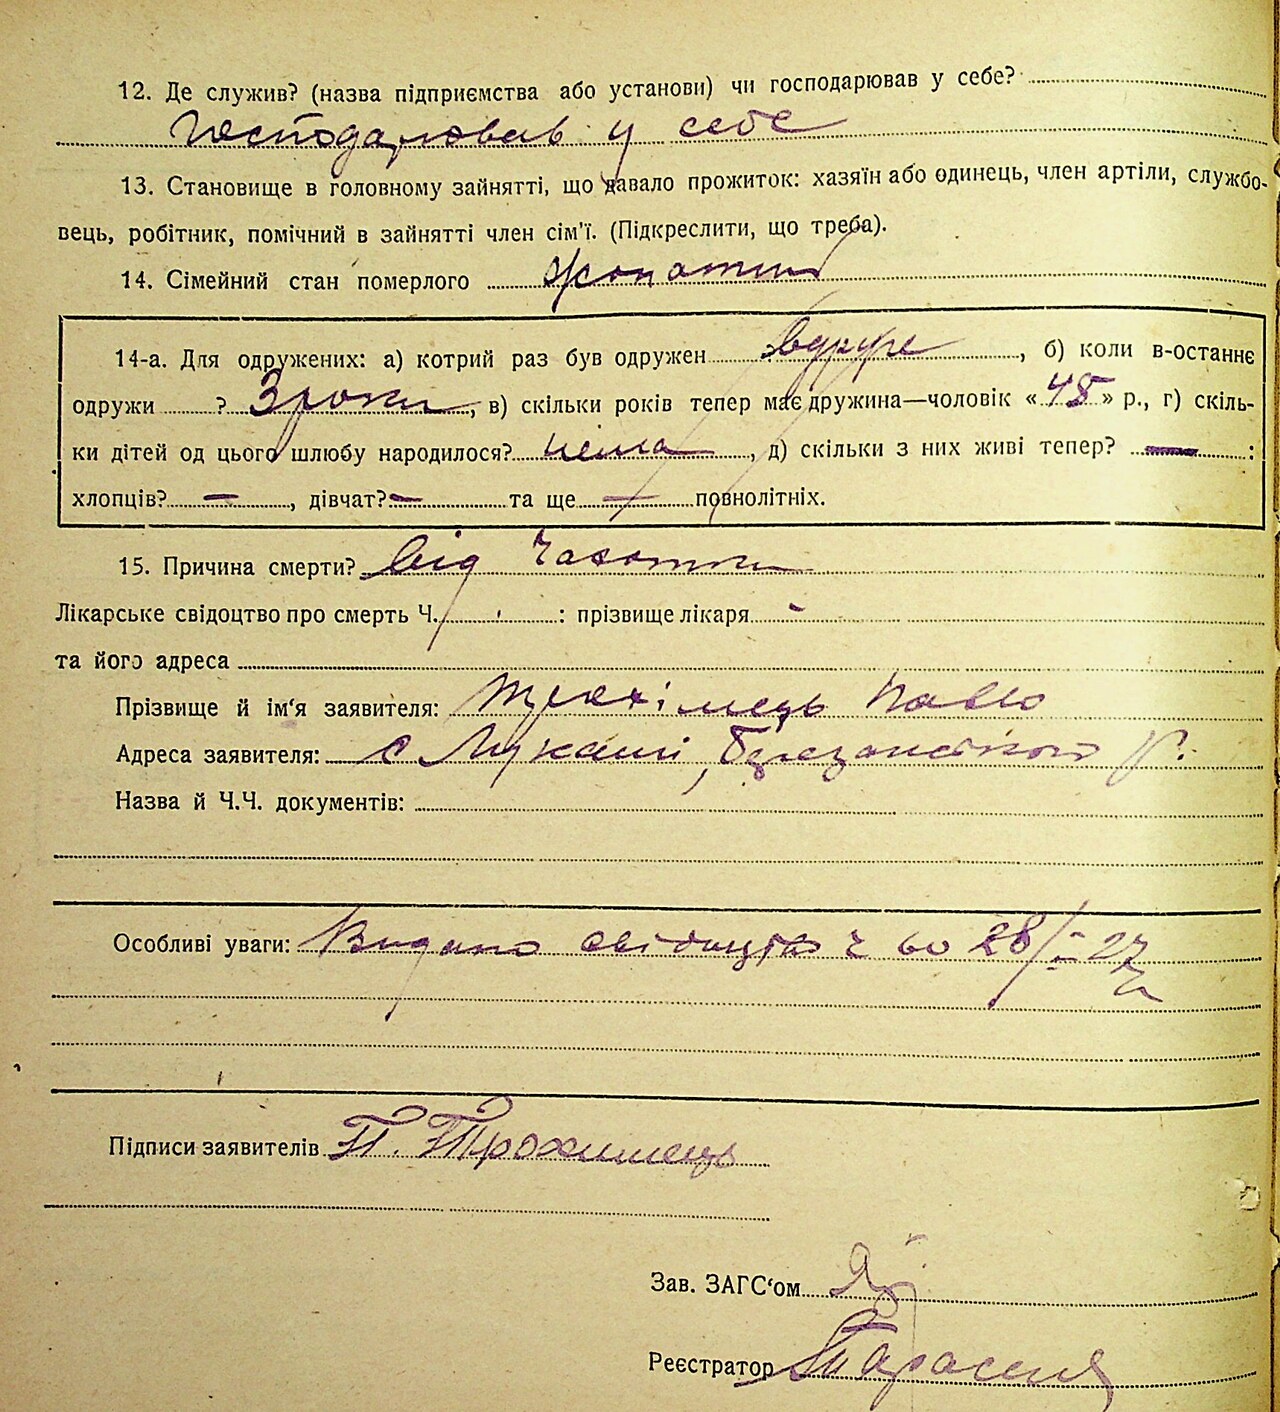 12. Де служив? (назва підприємства або установи) чи господарював у себе?
Господарював у себе
13. Становище в головному зайнятті, що давало прожиток: хазяїн або одинець, член артіли, службо-
вець, робітник, помічний в зайнятті член сім'ї. (Підкреслити, що треба).
14. Сімейний стан померлого
14-а. Для одружених: а) котрий раз був одружен вдруге, б) коли в-останнє
одружи ? 3 роки, в) скільки років тепер має дружина—чоловік «48» р., г) скіль-
ки дітей од цього шлюбу народилося? нема, д) скільки з них живі тепер? — :
хлопців? —, дівчат? — та ще — повнолітніх.
15. Причина смерти? від
Лікарське свідоцтво про смерть Ч. : прізвище лікаря -
та його адреса
Прізвище й ім'я заявителя: Трохимець Павло
Адреса заявителя: с Лукаші, Березанського р.
Назва й Ч.Ч. документів:
Особливі уваги: Видано свідоцтво ч 60 28/ 27
Підписи заявителів П. Трохимець
Зав. ЗАГС'ом
Реєстратор